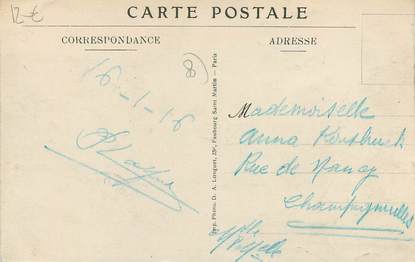 12 €
CARTE POSTALE
CORRESPONDANCE
ADRESSE
16-1-16
8
Imp. Photo. D. A. Longuet, 250, Faubourg Saint Martin - Paris
Mademoiselle
Anna
Rue de Nancy
Champigneulles